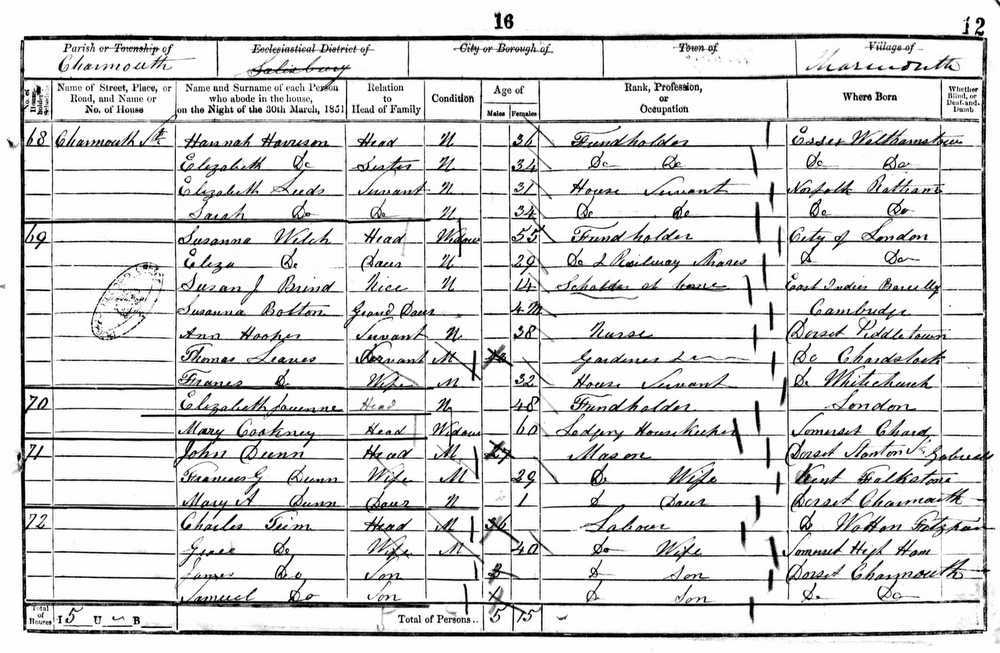 16
12
Parish or Township of Ecclesiastical District of City or Borough of Town of Village of
Charmouth Salisbury Charmouth
No. of House-holder's Schedule Name of Street, Place, or Road, and Name or No. of House Name and Surname of each Person who abode in the house, on the Night of the 30th March, 1851 Relation to Head of Family Condition Age of Males Females Rank, Profession, or Occupation Where Born Whether Blind, or Deaf-and-Dumb
68 Charmouth St Hannah Harrison Head U 36 Fundholder Essex Walthamstow
Elizabeth Do Sister U 34 Do Do Do Do
Elizabeth Leeds Servant U 31 House Servant Norfolk
Sarah Do Do U 34 Do Do Do Do
69 Susanna Welch Head Widow 55 Fundholder City of London
Eliza Do Daur U 29 Do & Railway Shares Do Do
Susan J Brind Nice U 14 Scholar at home East Indies Bareilly
Susanna Bolton Grand Daur 4M Cambridge
Ann Hooper Servant U 38 Nurse Dorset Piddletown
Thomas Leaves Servant M Gardener Do Chardstock
Frances Do Wife M 32 House Servant Do Whitechurch
70 Elizabeth Head U 48 Fundholder London
Mary Cookney Head Widow 60 Lodging Housekeeper Somerset Chard
71 John Dunn Head M 27 Mason Dorset Stanton St Gabriells
Frances G Dunn Wife M 29 Do Wife Kent Falkstone
Mary A Dunn Daur U 1 D Daur Dorset Charmouth
72 Charles Tim Head M 36 Labour D Wotton Fitzpain
Grace Do Wife M 40 Do Wife Somerset High Ham
James Do Son 3 D Son Dorset Charmouth
Samuel Do Son 1 D Son Do Do
Total of Houses I 5 U B Total of Persons 5 15